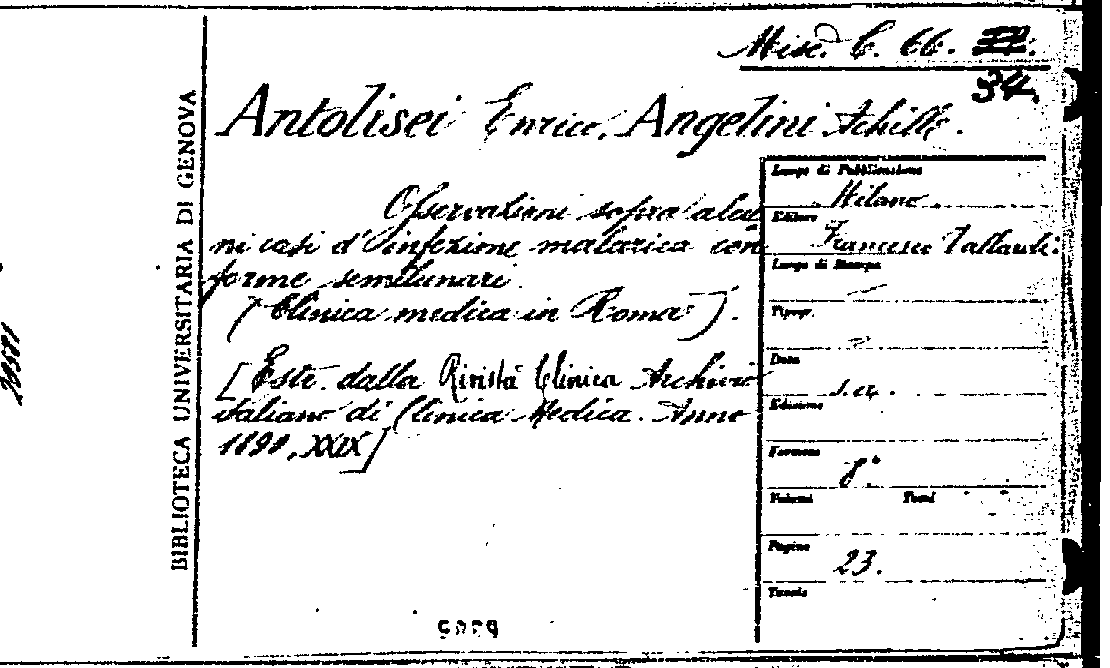 Misc. C. 66.
34.
Antolisei Enrico, Angelini Achille.
Osservazioni sopra alcu
ni casi d'infezione malarica con
forme semilunari.
(Clinica medica in Roma).
[Estr. dalla Rivista Clinica Archivio
italiano di Clinica Medica. Anno
1890, XXIX]
BIBLIOTECA UNIVERSITARIA DI GENOVA
Luogo di Pubblicazione
Milano.
Editore
Francesco Vallardi.
Luogo di Stampa
Tipogr.
Data
s.a.
Edizione
Formato
8°
Volumi Tomi
Pagine
23.
Tavole